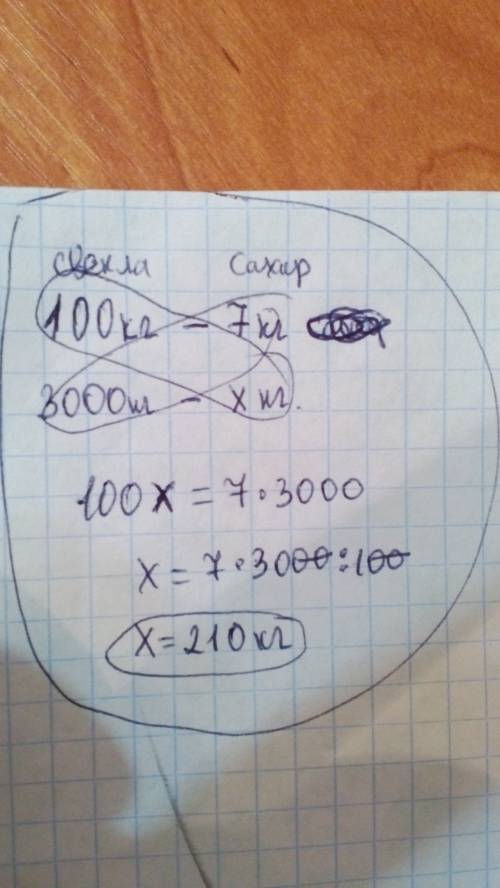 свекла Сахар
100кг – 7кг
3000кг – х кг.
100х = 7·3000
х = 7·3000:100
х=210кг